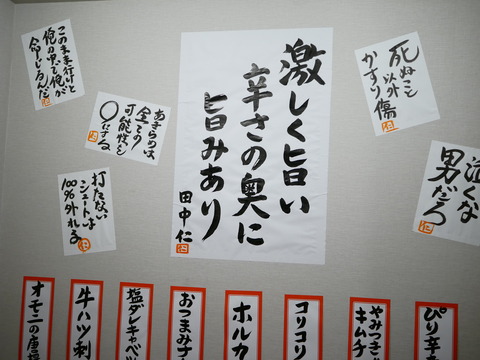 このまま行けと
俺の中で俺が
命じるんだ
仁
あきらめは
全ての
可能性を
〇にする
仁
打たない
シュートは
100%外れる
仁
激しく旨い
辛さの奥に
旨みあり
田中仁
仁
死ぬこと
以外
かすり傷
仁
泣くな
男だろ
仁
オモニの
牛ハツ刺
塩ダレキャベツ
おつまみ
ホルカ
コリコリ
やみつき
キムチ
ぴり辛